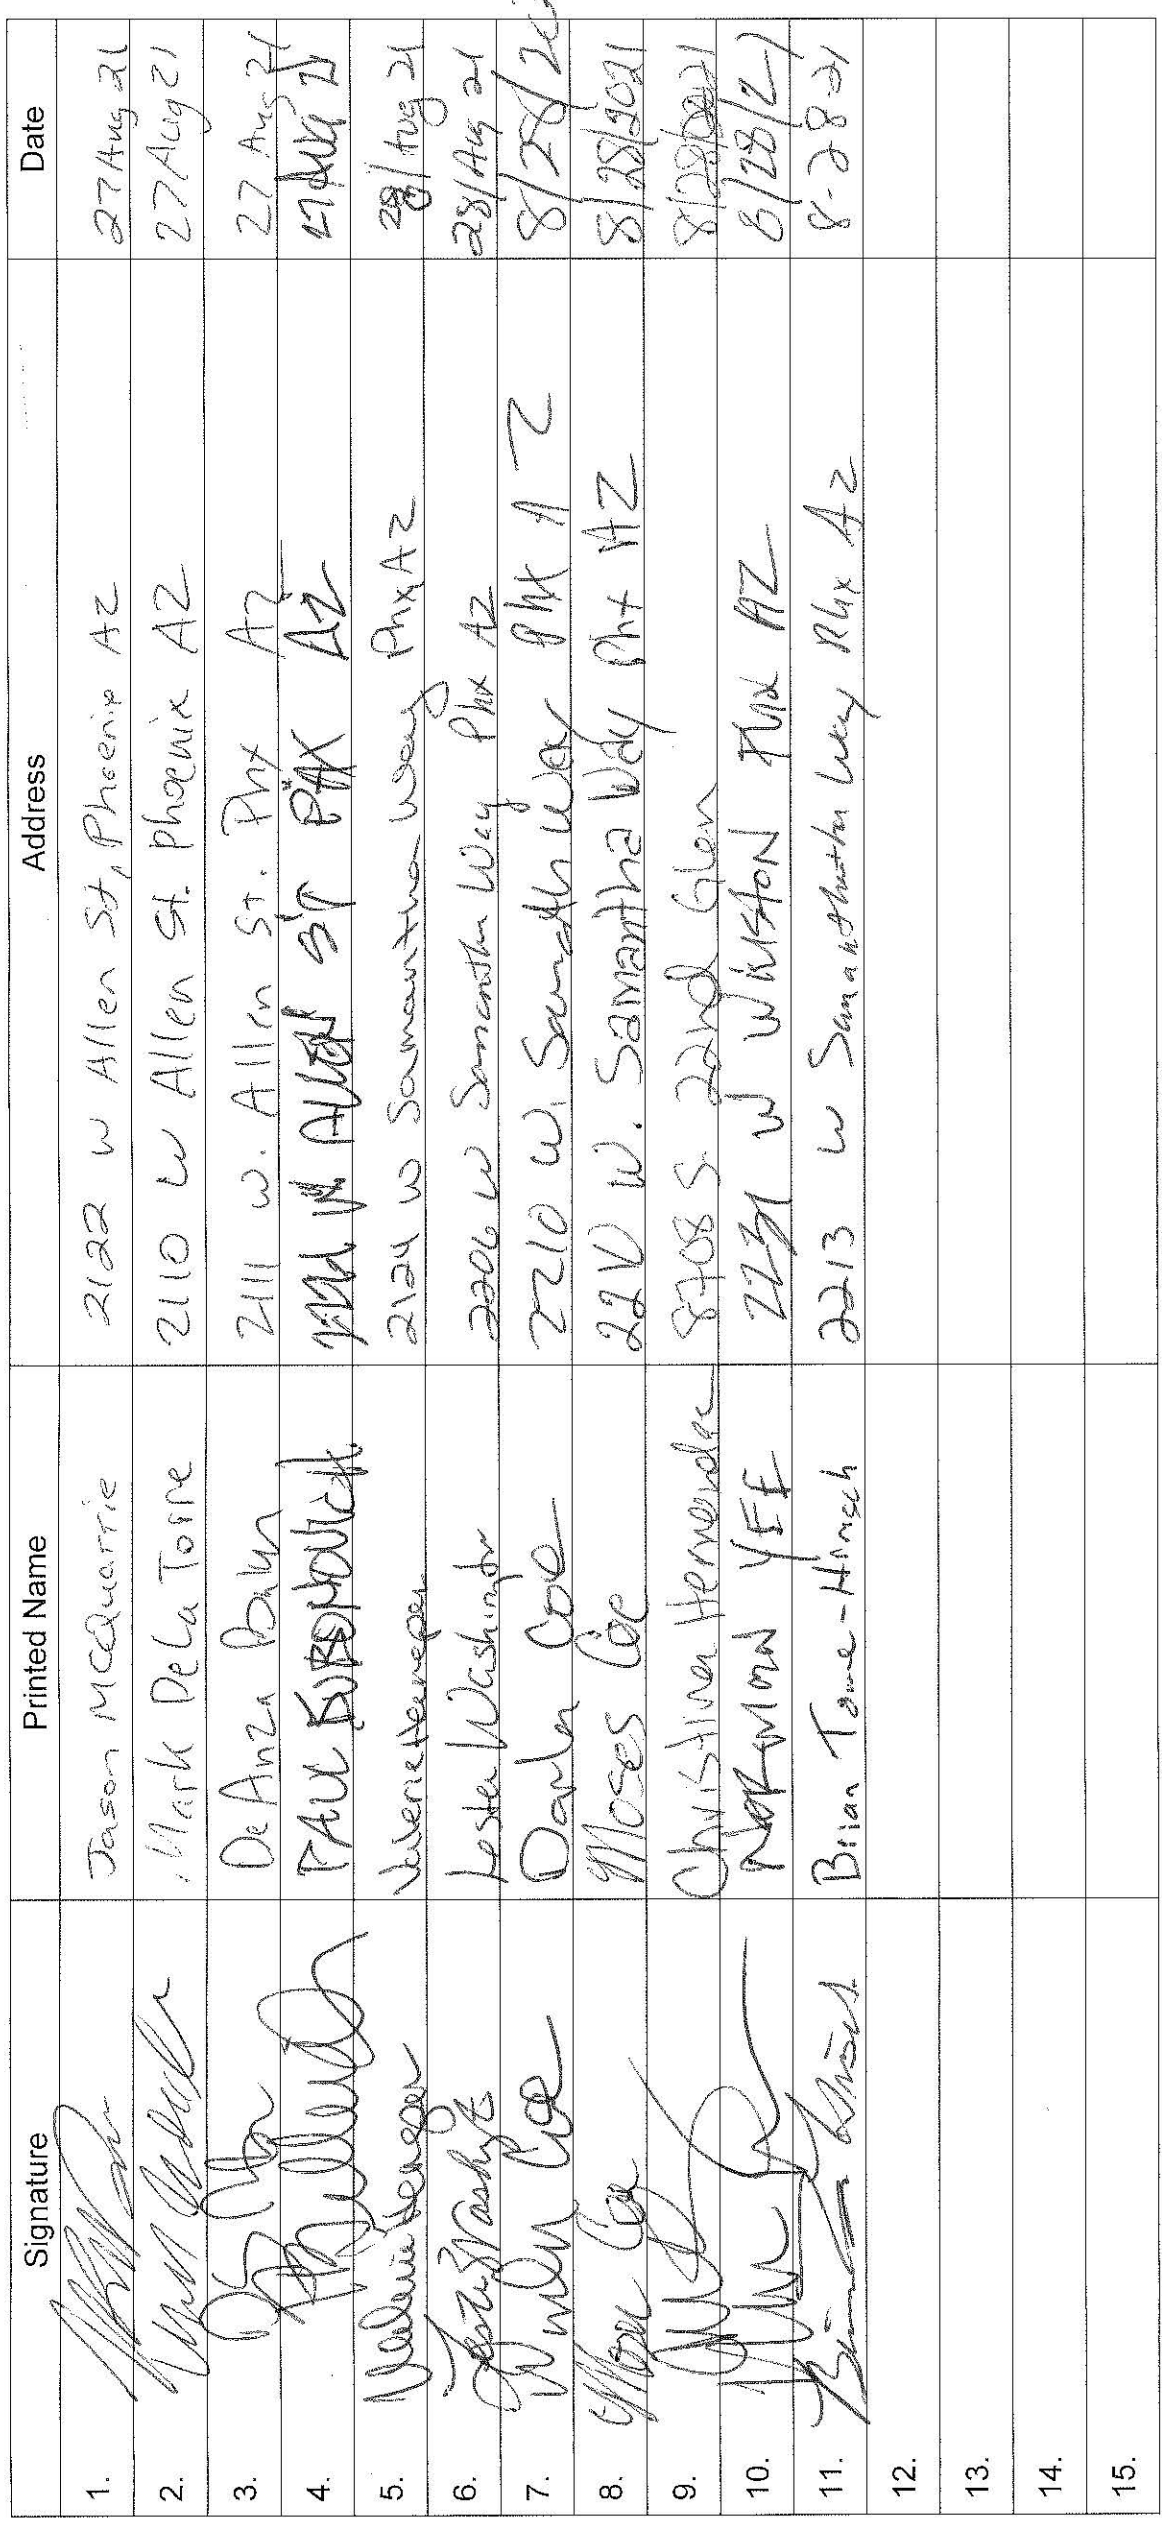 Signature Printed Name Address Date
1. Jason McQuarrie 2122 W Allen St, Phoenix AZ 27 Aug 21
2. Mark De La Torre 2110 W Allen St. Phoenix AZ 27 Aug 21
3. DeAnza 2111 W. Allen St. Phx AZ 27 Aug 21
4. PAUL ST PHX AZ 27 AUG 21
5. Valerie Henager 2124 W Samantha Way Phx, AZ 28/Aug 21
6. Lester Washington 2206 W Samantha Way Phx AZ 28/Aug 21
7. Darla Coe 2210 W. Samantha Way Phx AZ 8/28/
8. Moses Coe 2210 W. Samantha Way Phx AZ 8/28/2021
9. Christina Hernandez 8708 S. 22nd Glen 8/28/2021
10. NORMAN YEE W WINSTON PHX AZ 8/28/21
11. Brian Towne-Hirsch 2213 W Samantha Way Phx AZ 8-28-21
12.
13.
14.
15.